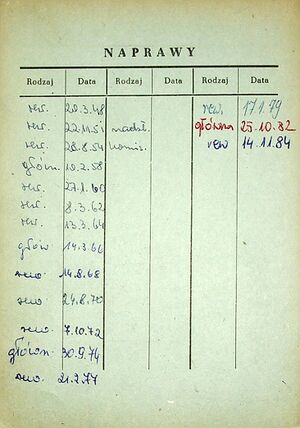 NAPRAWY
Rodzaj Data Rodzaj Data Rodzaj Data
rew. 20.3.48 rew. 17.1.79
rew. 22.11.51 nadzw. główna 25.10.82
rew. 28.8.54 komis. rew 14.11.84
główn. 10.2.58
rew. 27.1.60
rew. 8.3.62
rew. 13.3.64
głów. 14.3.66
rew 14.8.68
rew 24.8.70
rew. 7.10.72
główn. 30.9.74
rew. 21.2.77